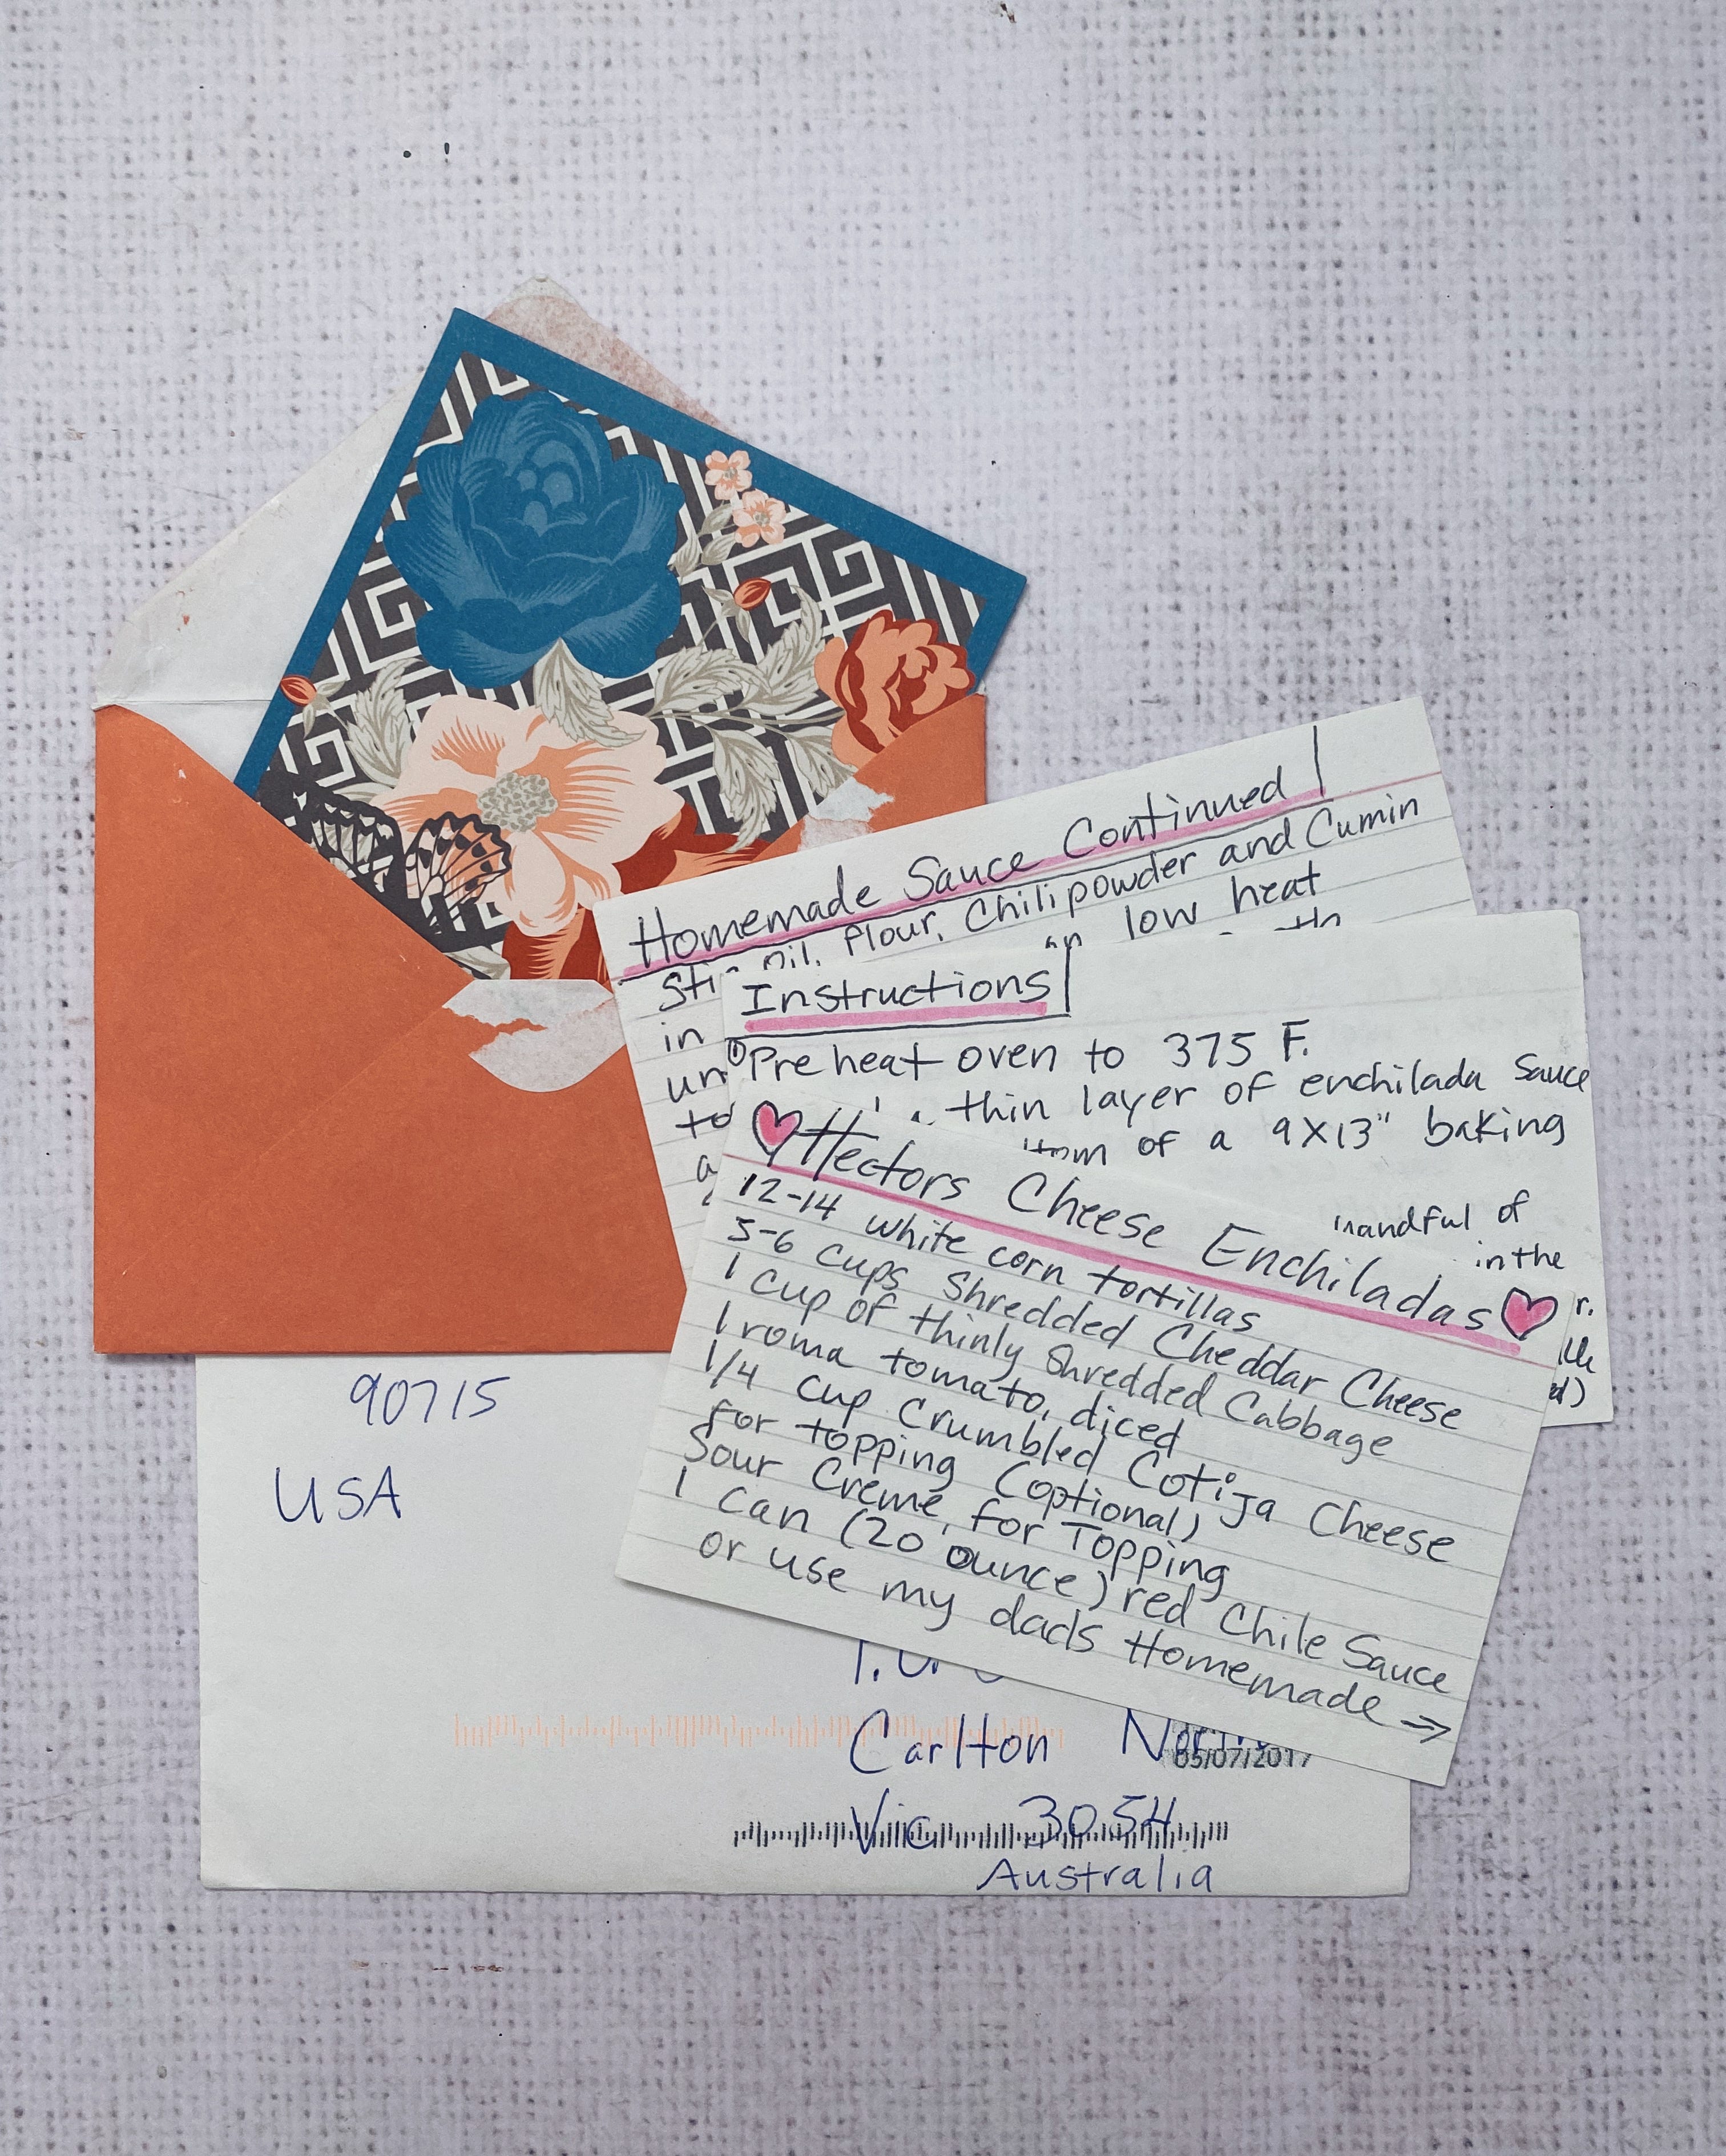 Homemade Sauce Continued
oil, flour, Chilipowder and Cumin
in low heat
Instructions
① Preheat oven to 375 F.
thin layer of enchilada Sauce
of a 9X13" baking
handful of
in the
Hectors Cheese Enchiladas
12-14 white corn tortillas
5-6 cups Shredded Cheddar Cheese
1 cup of thinly Shredded Cabbage
1 roma tomato, diced
1/4 cup Crumbled Cotija Cheese
for topping (optional)
Sour Creme, for Topping
1 can (20 ounce) red Chile Sauce
or use my dads Homemade →
90715
USA
Carlton North
05/07/2017
Vic 3054
Australia